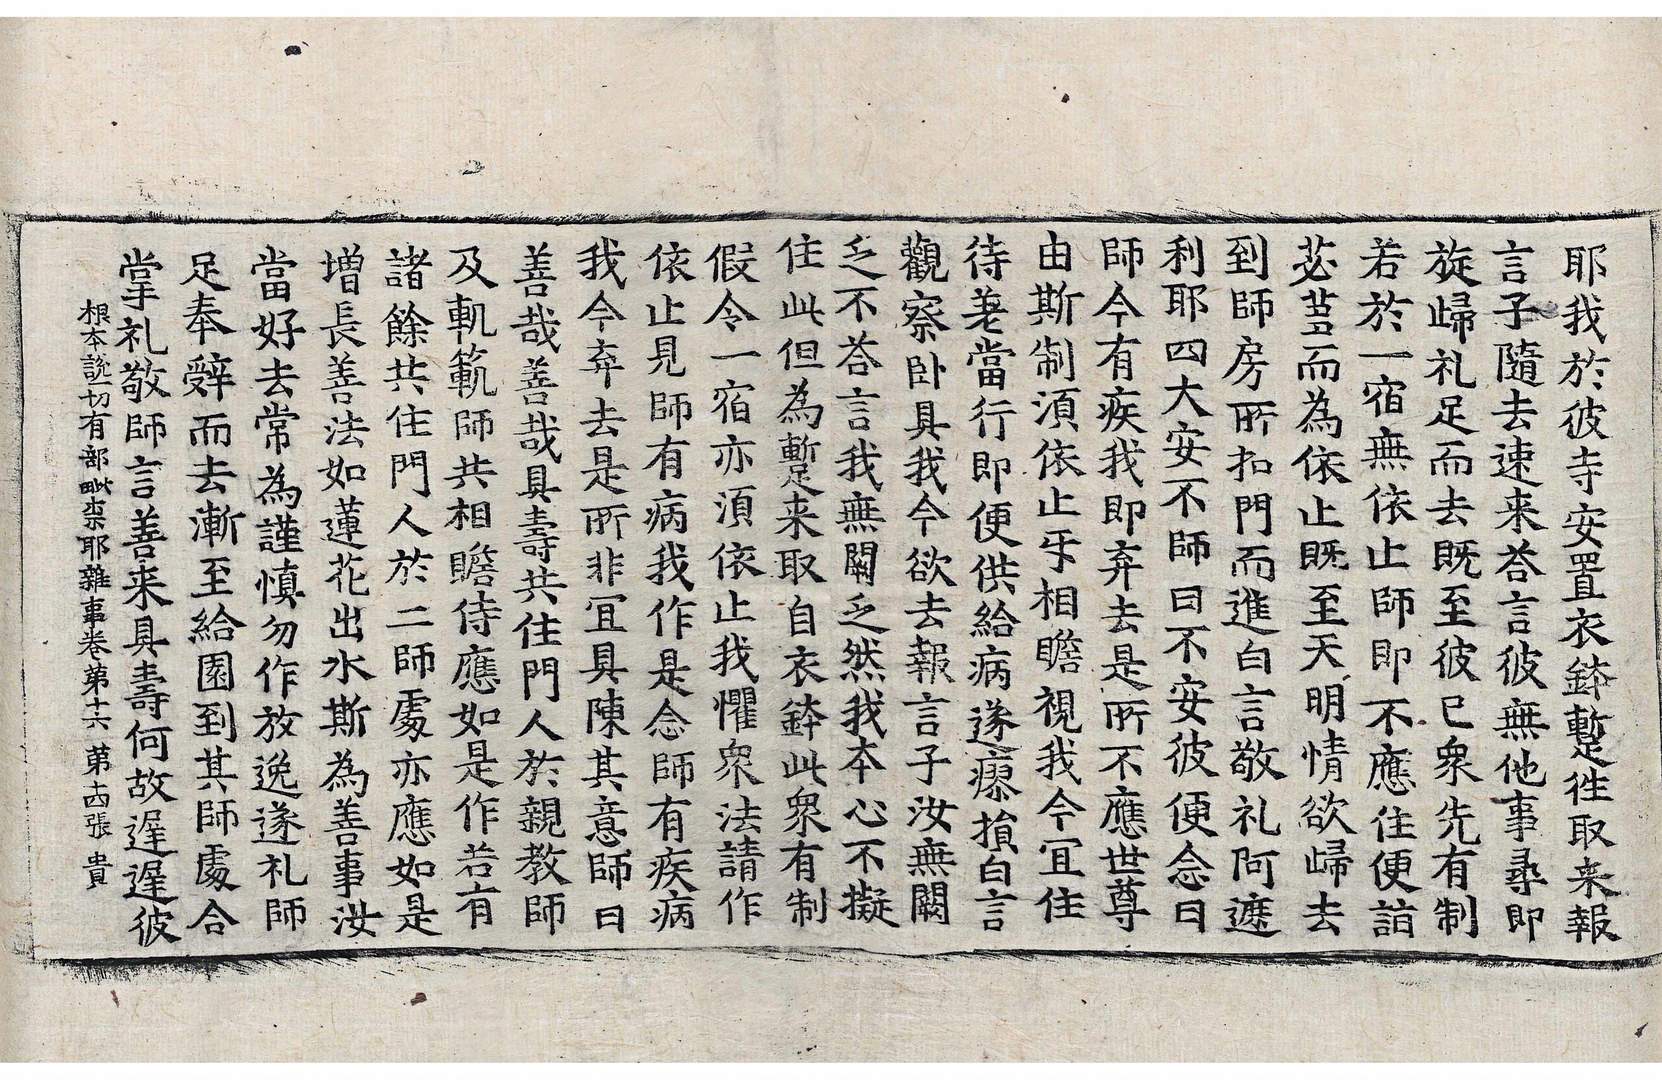 耶我於彼寺安置衣鉢暫徃取来報
言子隨去速来荅言彼無他事尋即
旋歸礼足而去既至彼已衆先有制
若於一宿無依止師即不應住便詣
苾芻而為依止既至天明情欲歸去
到師房所扣門而進白言敬礼阿遮
利耶四大安不師曰不安彼便念曰
師今有疾我即弃去是所不應世尊
由斯制湏依止𭃂相瞻視我今冝住
待差當行即便供給病遂瘳損白言
觀察卧具我今欲去報言子汝無闕
乏不荅言我無闕乏然我本心不擬
住此但為暫来取自衣鉢此衆有制
假令一宿亦湏依止我懼衆法請作
依止見師有病我作是念師有疾病
我今弃去是所非冝具陳其意師曰
善哉善哉具壽共住門人於親教師
及軌範師共相瞻侍應如是作若有
諸餘共住門人於二師處亦應如是
增長善法如蓮花出水斯為善事汝
當好去常為謹慎勿作放逸遂礼師
足奉辭而去漸至給園到其師處合
掌礼敬師言善来具壽何故遲遲彼
根本說一切有部毗柰耶雜事卷第十六 第十四張 貴